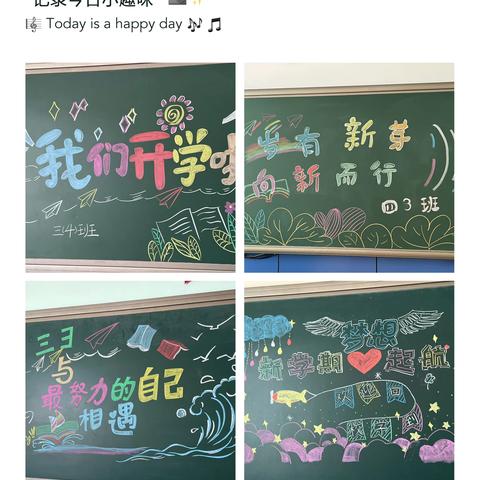 记录今日小趣味
Today is a happy day
我们开学啦
三(4)班
岁有新芽
向新而行
四3班
三3
与
最努力的自己
相遇
梦想
新学期 起航
欢迎回